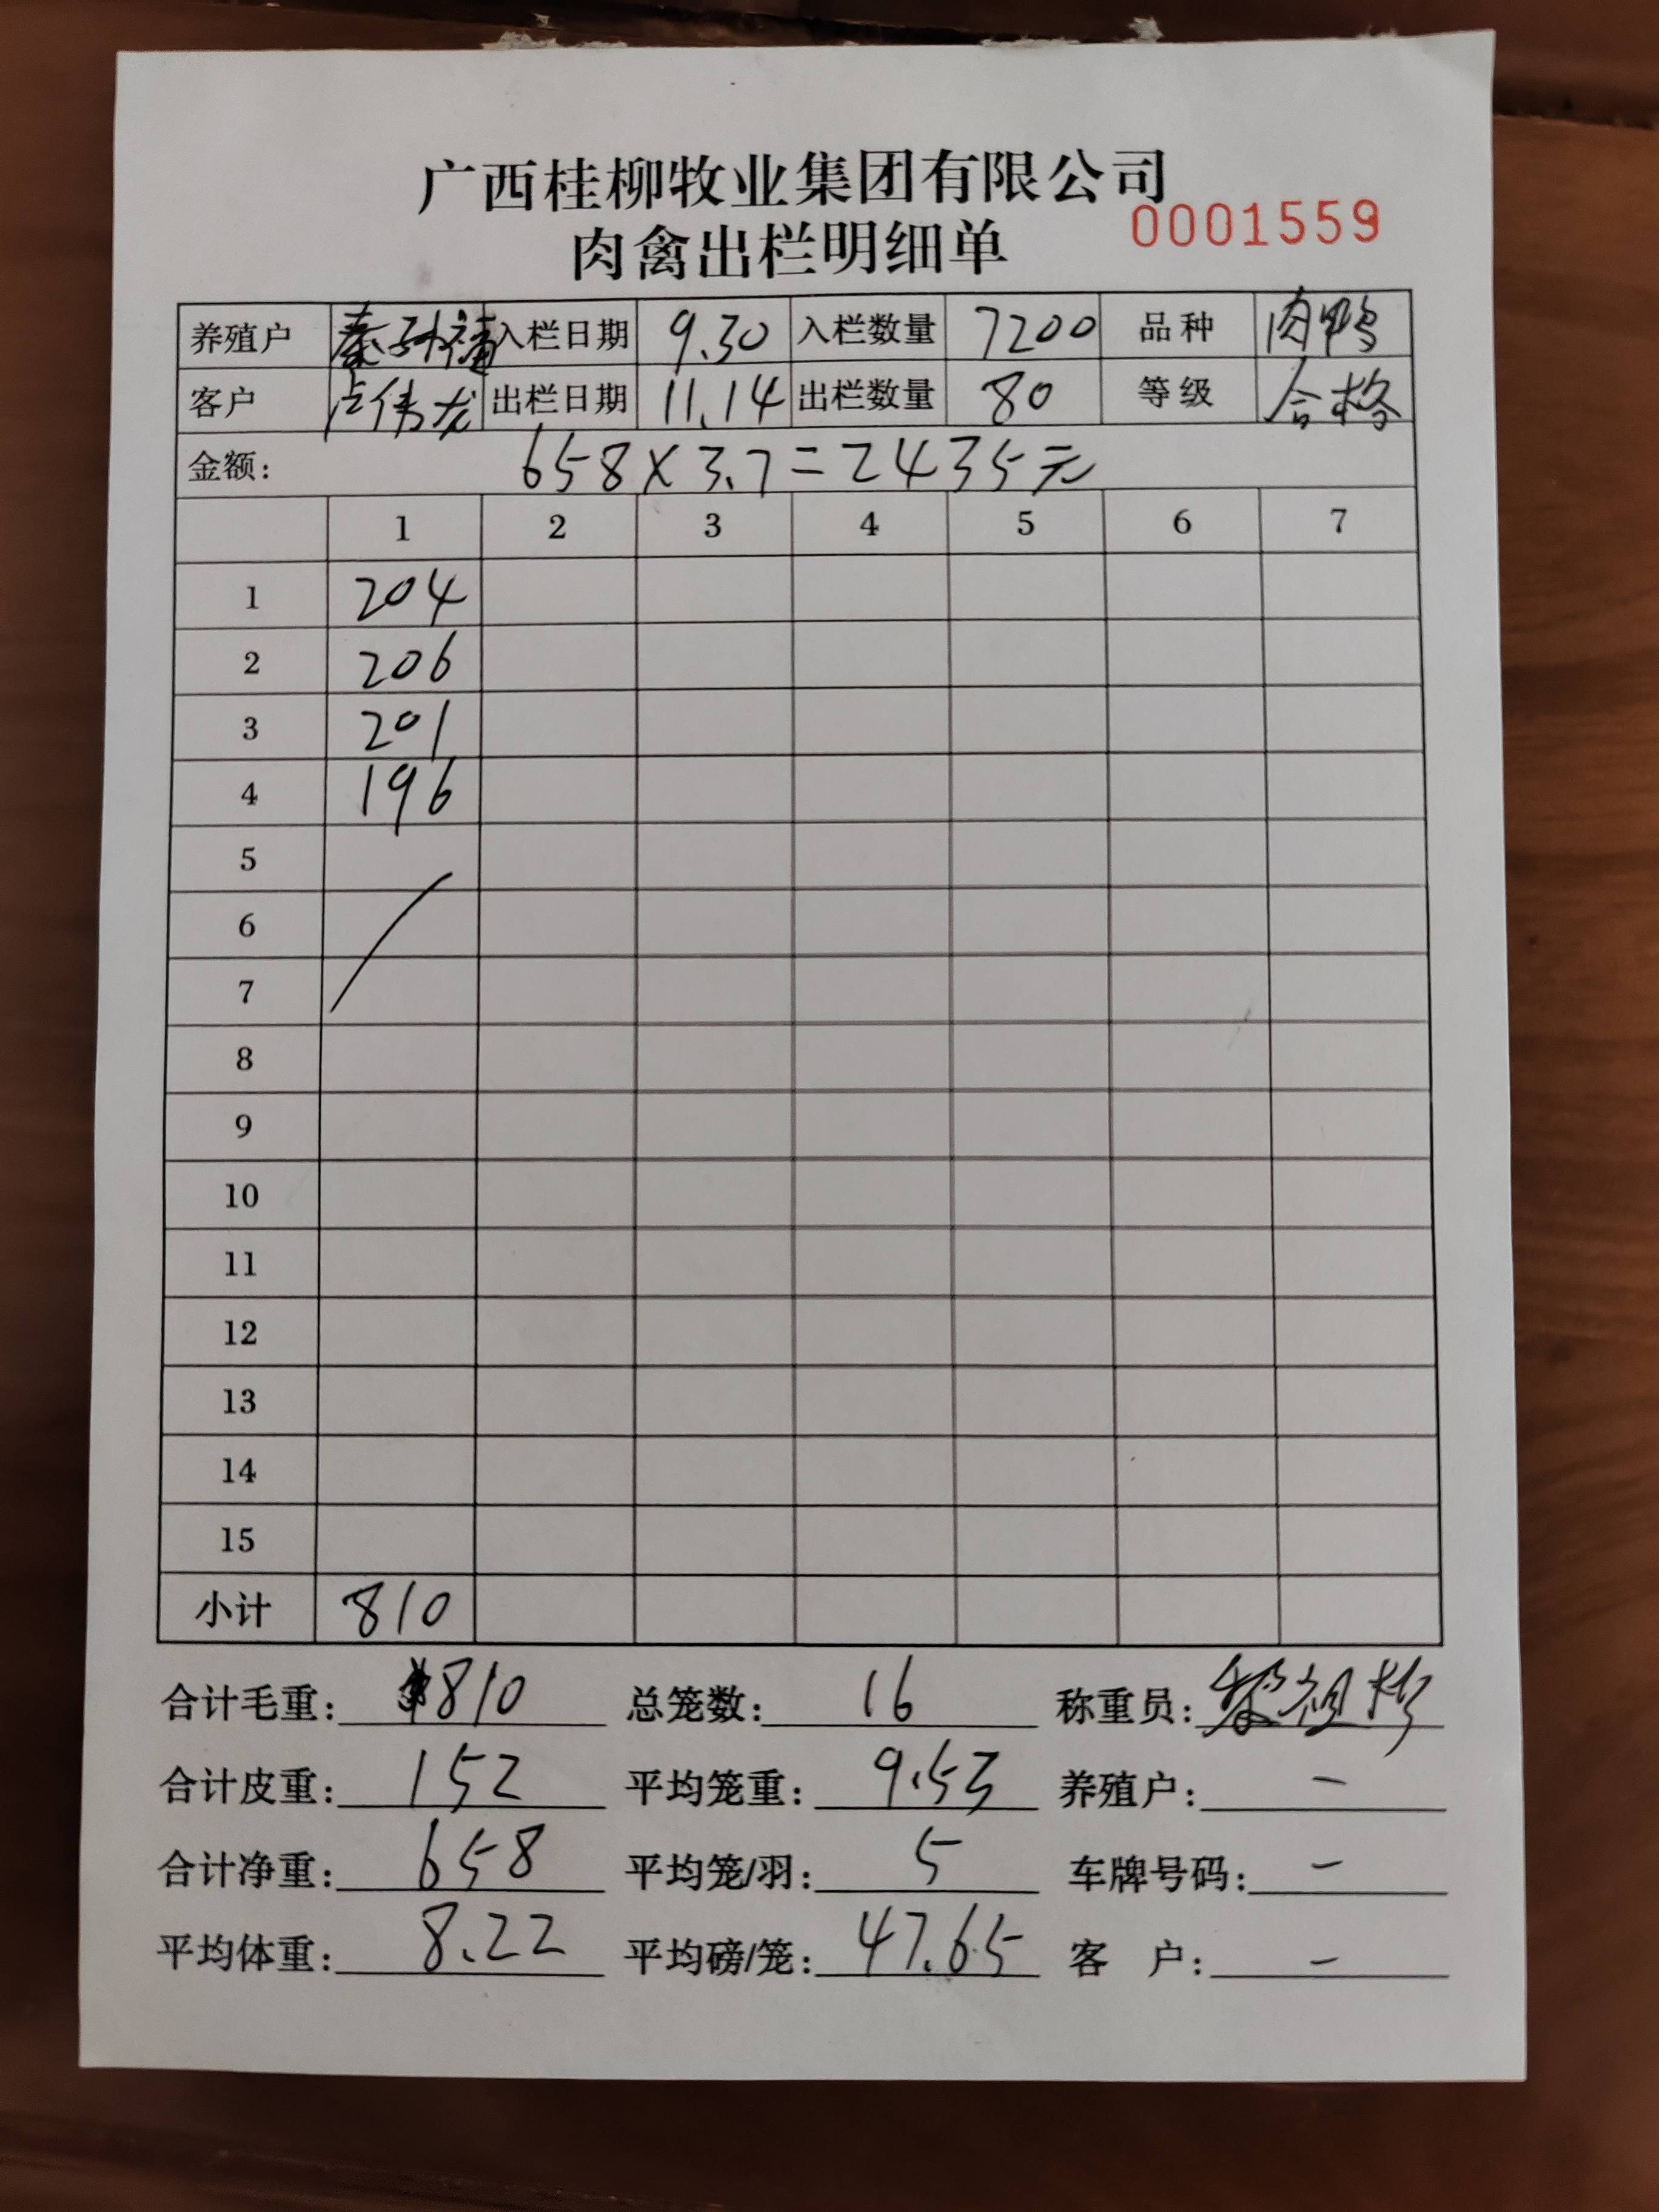 广西桂柳牧业集团有限公司
肉禽出栏明细单 0001559
养殖户 秦 福 入栏日期 9.30 入栏数量 7200 品种 肉鸭
客户 卢伟龙 出栏日期 11.14 出栏数量 80 等级 合格
金额: 658×3.7=2435元
1 2 3 4 5 6 7
1 204
2 206
3 201
4 196
5
6
7
8
9
10
11
12
13
14
15
小计 810
合计毛重: 810 总笼数: 16 称重员: 祖
合计皮重: 152 平均笼重: 9.53 养殖户: —
合计净重: 658 平均笼/羽: 5 车牌号码: —
平均体重: 8.22 平均磅/笼: 47.65 客 户: —